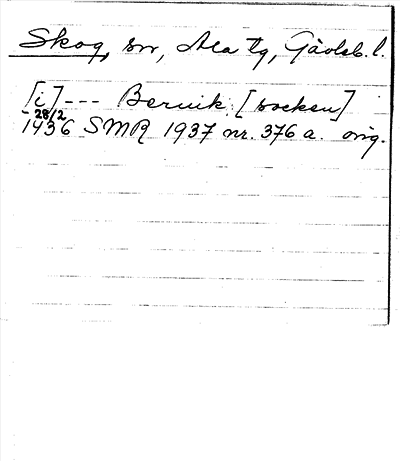 Skog, sn, Ala tg, Gävleb. l.
[i] --- Beruik [socken]
28/2
1436 SMR 1937 nr. 376 a. orig.